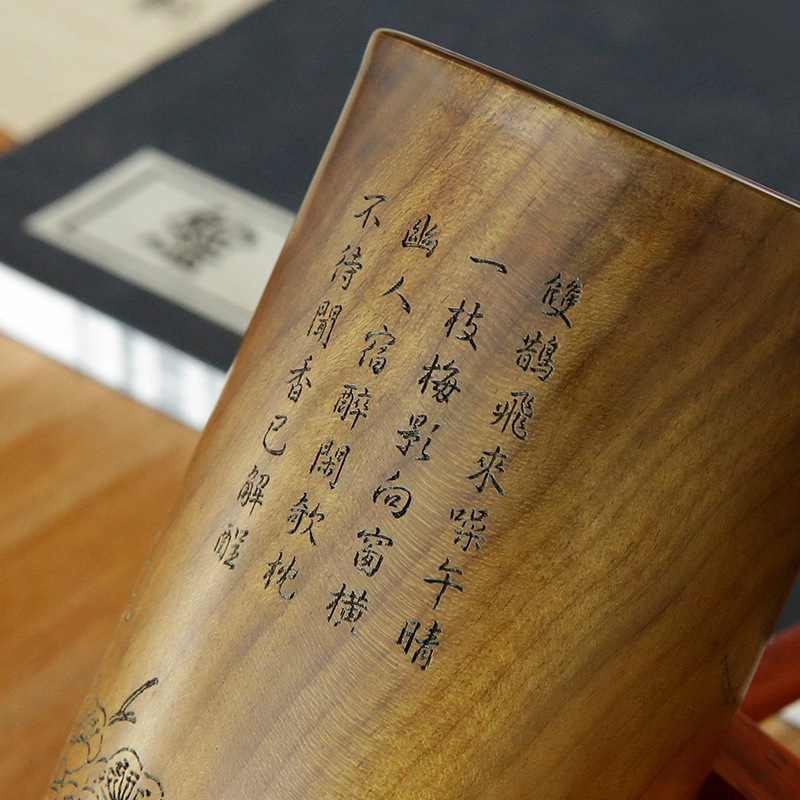 雙鵲飛來噪午晴
一枝梅影向窗橫
幽人宿醉閑欹枕
不待聞香已解酲